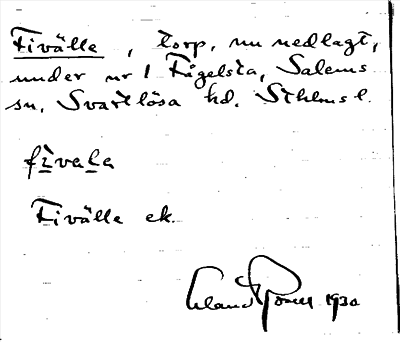 Fivälle, torp, nu nedlagt,
under nr 1 Figelsta, Salems
sn, Svartlösa hd. Sthlms l.
fìvaḷa
Fivälle ek.
Erland Rosell 1930